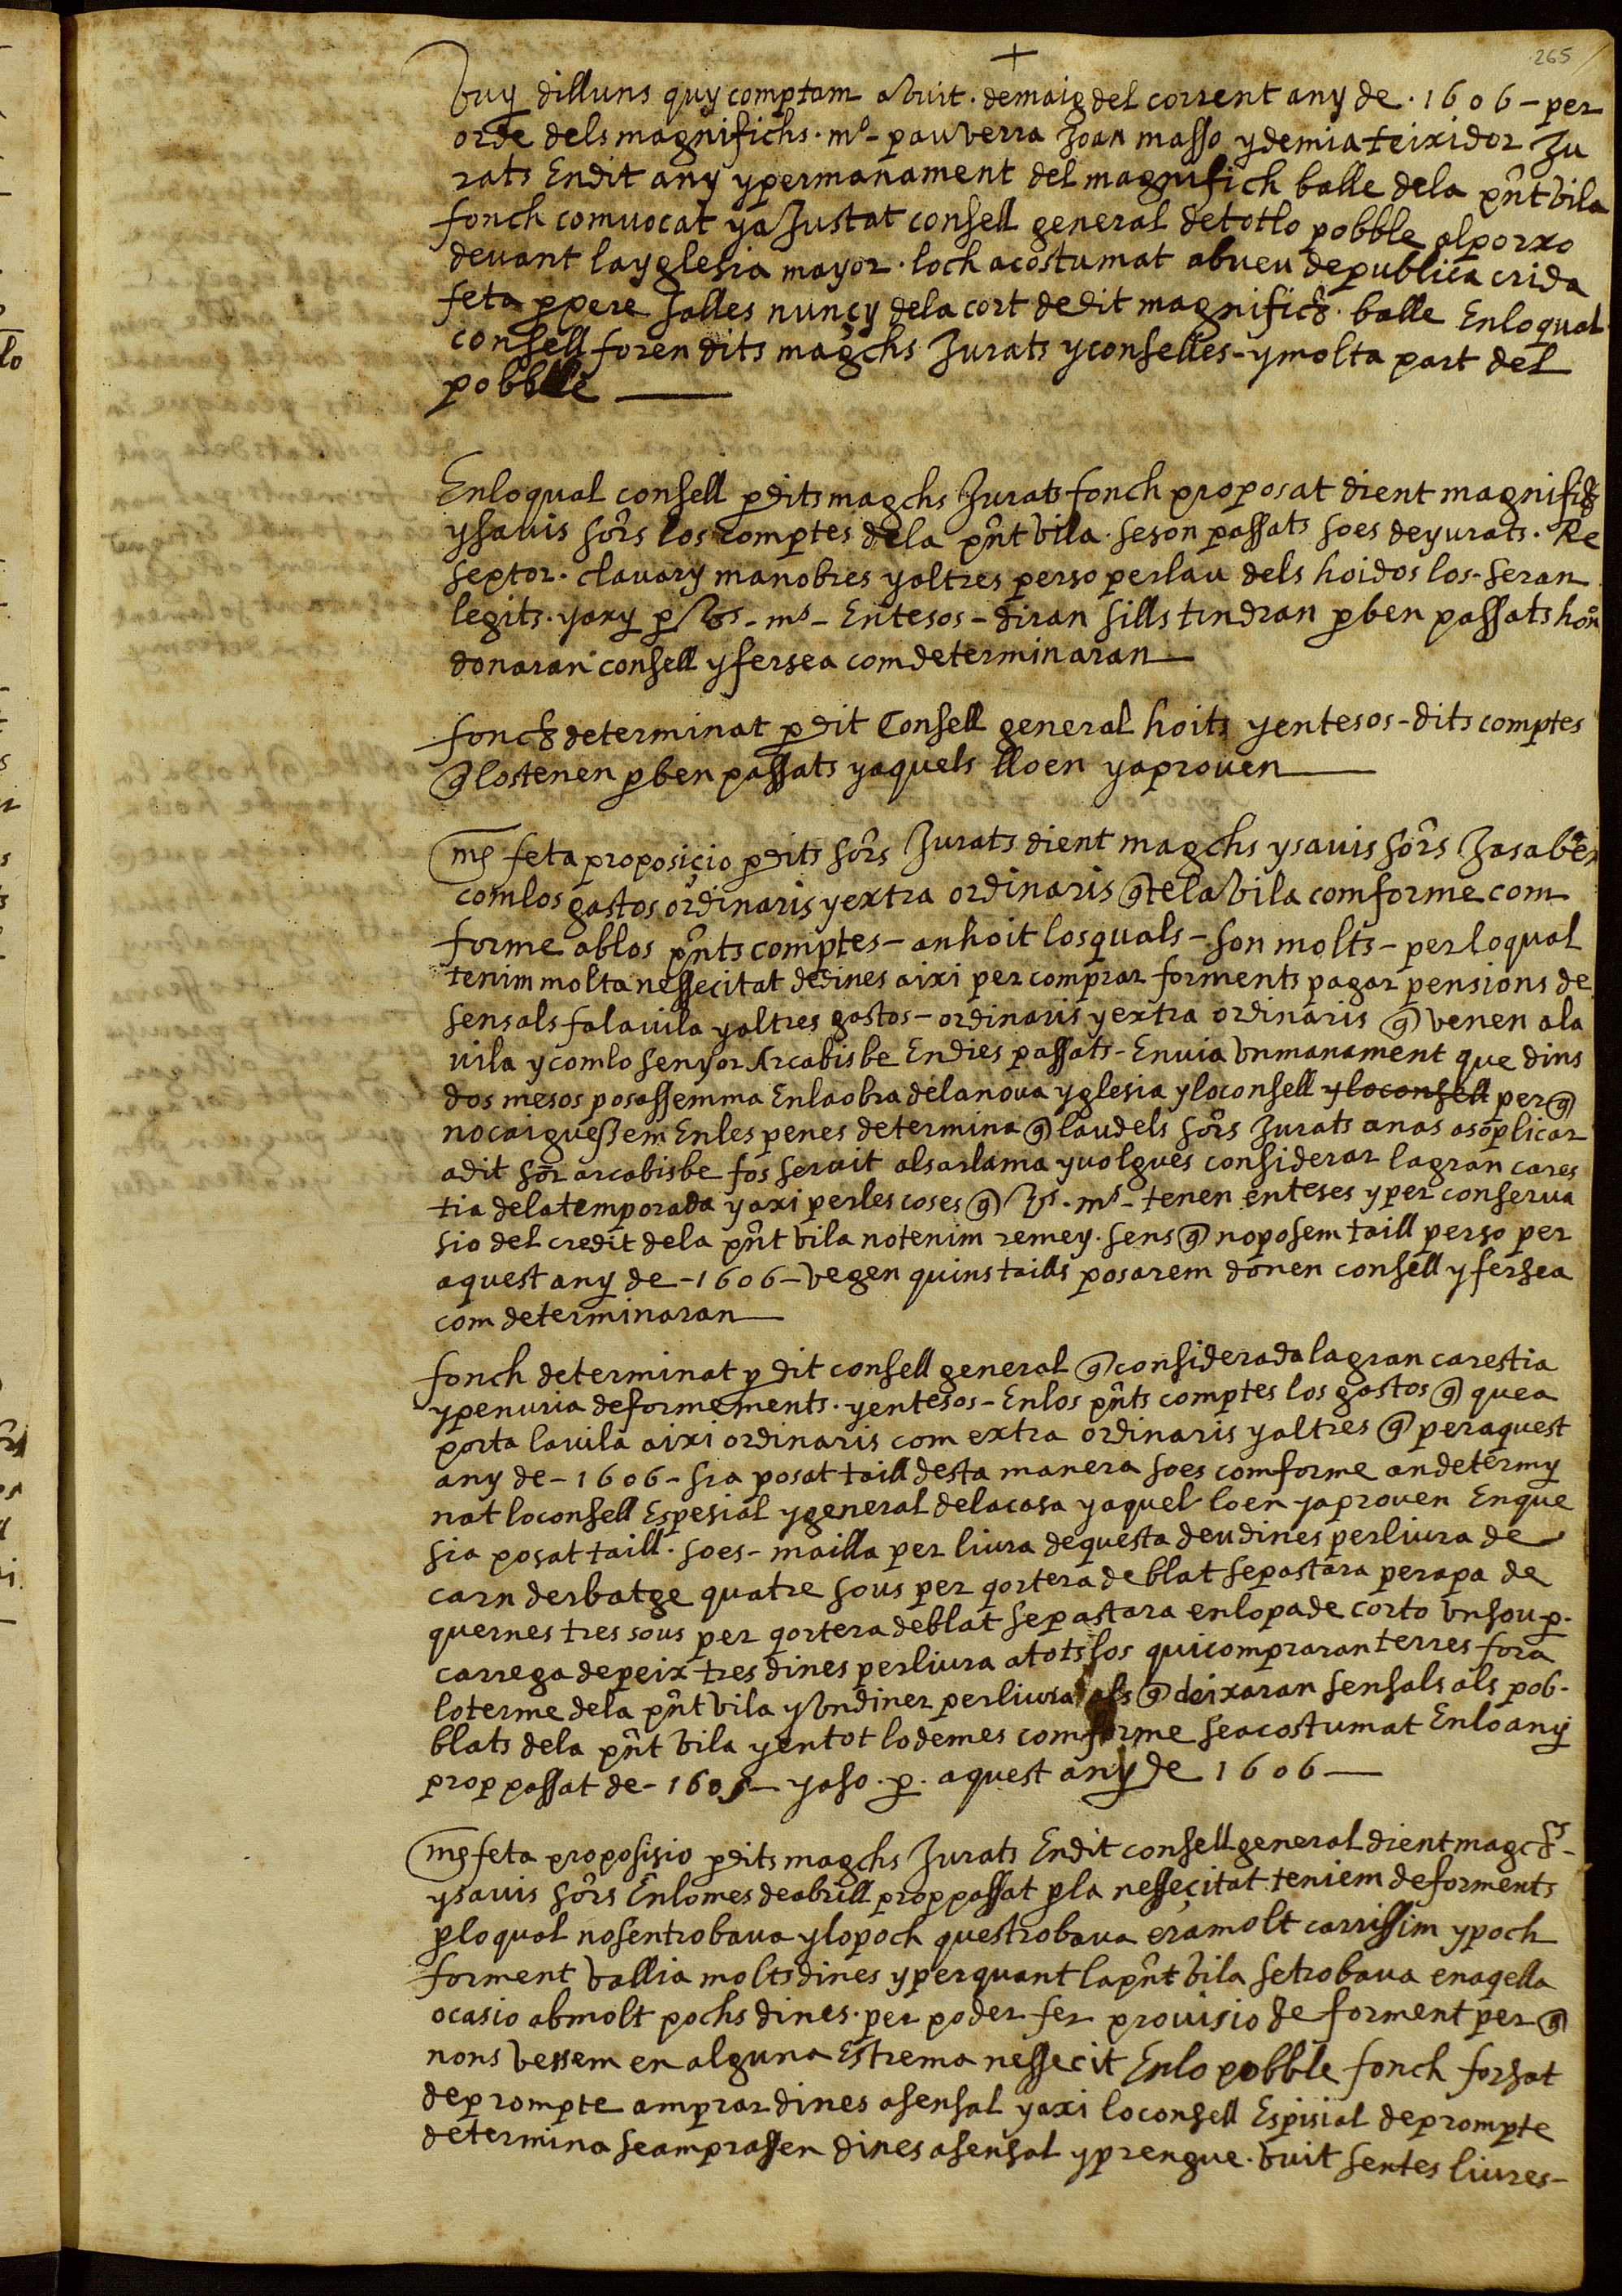 +
265
Vuy dilluns quy comptam a vuit. de maig del corrent any de. 1606 - per
orde dels magnifichs. mº - pau verra Joan masso y demia teixidor Ju
rats En dit any y per manament del magnifich balle dela pn̂t vila
fonch comvocat y a Justat consell general de tot lo pobble al porxo
devant la yglesia mayor. loch acostumat ab veu de publica crida
feta p pere salles nuncy dela cort de dit magnifich. balle En lo qual
consell foren dits magchs Jurats y conselles - y molta part del
pobble
En lo qual consell p dits magchs Jurats fonch proposat dient magnifichs
y savis sôrs los comptes dela pn̂t vila. se son passats soes de yurats. Re
septor. clavary manobres y altres perso per lau dels hoidos los - seran
legits. y axy p vs - ms - Entesos - diran sills tindran p ben passats hon
donaran consell y fersea com determinaran
fonch determinat p dit Consell general hoits y entesos - dits comptes
q̃ los tenen p ben passats y aquels lloen y aproven
mes feta proposicio p dits sôrs Jurats dient magchs y savis sôrs Ja saben
com los gastos ordinaris y extra ordinaris q̃ te la vila comforme com
forme ab los pn̂ts comptes - an hoit los quals - son molts - per lo qual
tenim molta nessecitat de dines aixi per comprar forments pagar pensions de
sensals fa la vila y altres gastos - ordinaris y extra ordinaris q̃ venen a la
vila y com lo senyor Arcabisbe En dies passats - Envia vn manament que dins
dos mesos posassem ma En la obra dela nova yglesia y lo consell y lo consell per q̃
no caiguessem En les penes determina q̃ lau dels sôrs Jurats anas a soplicar
a dit sor arcabisbe fos servit alsar la ma y volgues considerar la gran cares
tia dela temporada y axi per les coses q̃ vs. ms - tenen enteses y per conserva
sio del credit dela pn̂t vila no tenim remey. sens q̃ no posem taill perso per
aquest any de - 1606 - vegen quins taills posarem donen consell y fersea
com determinaran
fonch determinat p dit consell general q̃ considerada la gran carestia
y penuria de formements. y entesos - En los pn̂ts comptes los gastos q̃ que a
porta la vila aixi ordinaris com extra ordinaris y altres q̃ per aquest
any de - 1606 - sia posat taill desta manera soes comforme an determy
nat lo consell Espesial y general dela casa y aquel loen y aproven En que
sia posat taill. soes - mailla per liura de questa deu dines per liura de
carn derbatge quatre sous per qortera de blat se pastara per a pa de
quernes tres sous per qortera de blat se pastara en lo pa de corto vn sou p.
carrega de peix tres dines per liura a tots los qui compraran terres fora
lo terme dela pn̂t vila y vn diner per liura als q̃ deixaran sensals als pob-
blats dela pn̂t vila y en tot lo demes comforme se acostumat En lo any
prop passat de - 1605 - y aso. p. aquest any de 1606
mes feta proposisio p dits magchs Jurats En dit consell general dient magchs -
y savis sôrs En lo mes de abrill prop passat p la nessecitat teniem de forments
p lo qual no sen trobava y lo poch ques trobava era molt carrissim y poch
forment vallia molts dines y per quant la pn̂t vila se trobava en aqella
ocasio ab molt pochs dines. per poder fer provisio de forment per q̃
nons vessem en alguna Estrema nessecit En lo pobble fonch forsat
de prompte amprar dines a sensal y axi lo consell Espisial de prompte
determina se amprassen dines a sensal y prengue. vuit sentes liures -